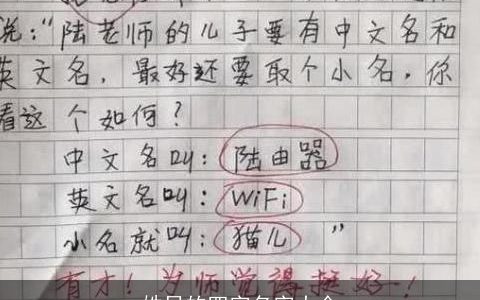 说:“陆老师的儿子要有中文名和
英文名,最好还要取个小名,你
看这个如何?
中文名叫:陆由器
英文名叫:WiFi
小名就叫:猫儿”
有才!为师觉得挺好!